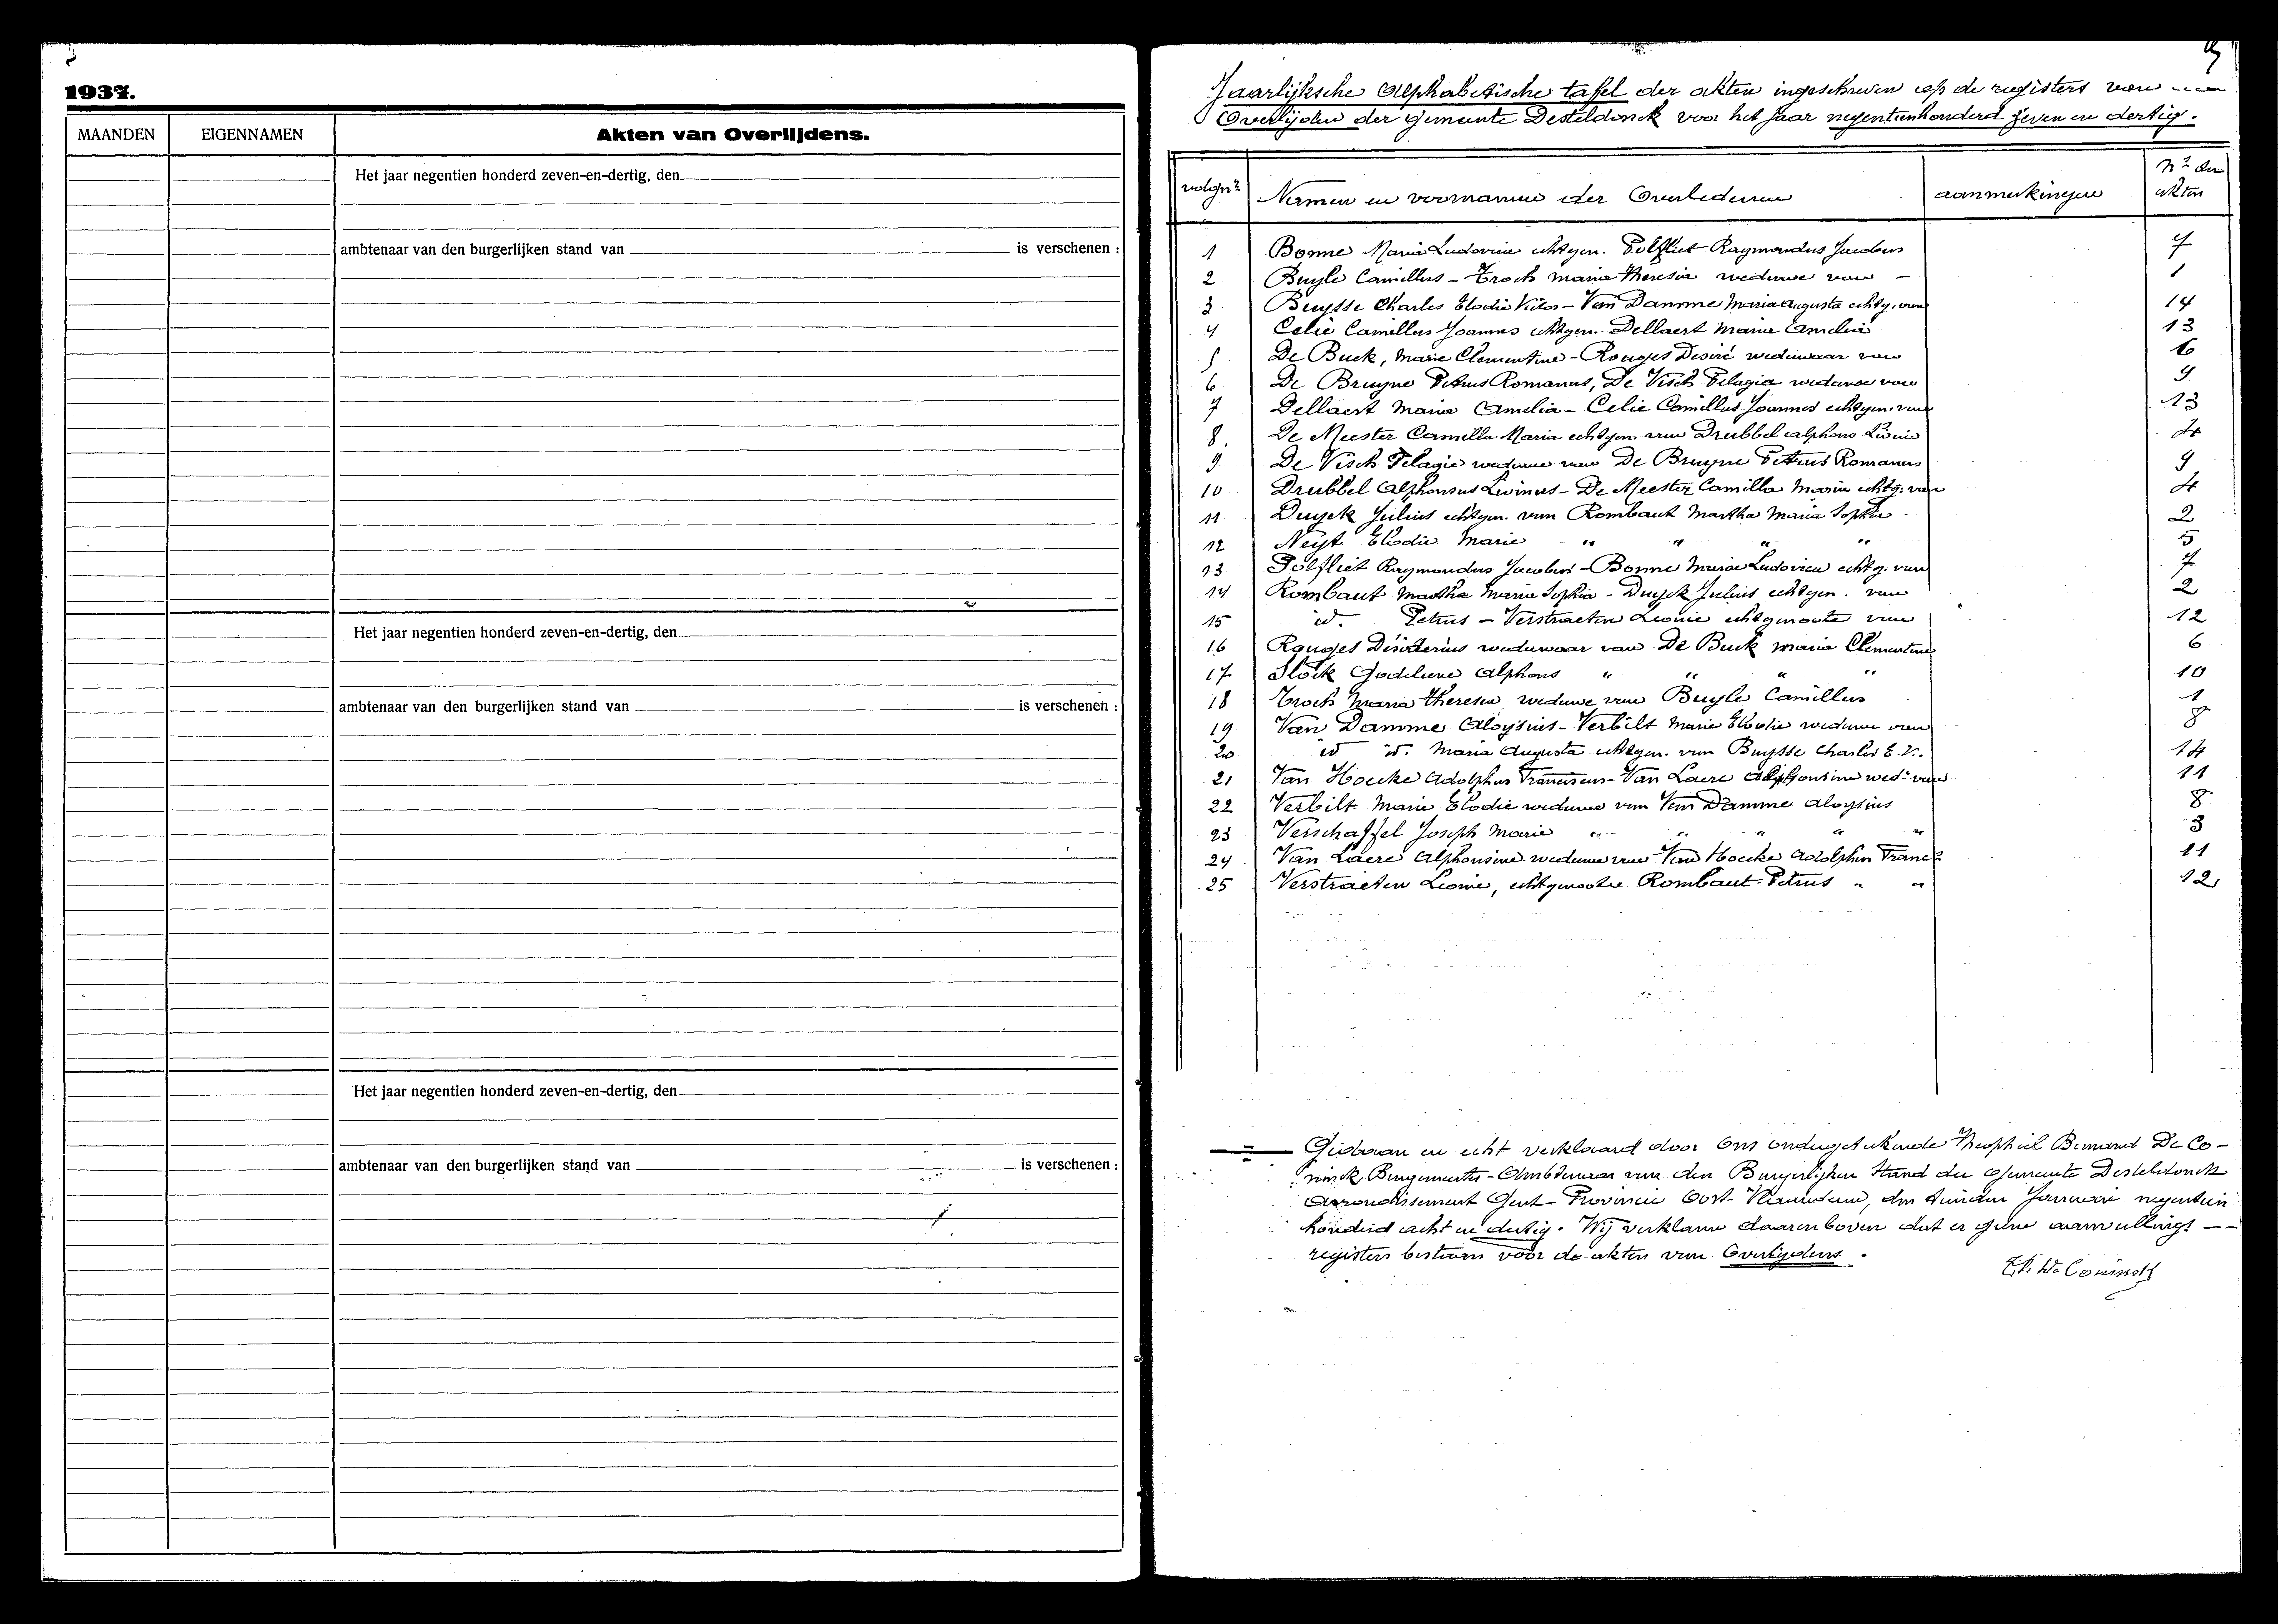 1937.
MAANDEN EIGENNAMEN Akten van Overlijdens.
Het jaar negentien honderd zeven-en-dertig, den
ambtenaar van den burgerlijken stand van is verschenen :
Het jaar negentien honderd zeven-en-dertig, den
ambtenaar van den burgerlijken stand van is verschenen :
Het jaar negentien honderd zeven-en-dertig, den
ambtenaar van den burgerlijken stand van is verschenen :
Jaarlijksche Alphabetische tafel der akten ingeschreven op de registers van
Overlijden der gemeente Desteldonck voor het jaar negentienhonderd zeven en dertig.
volgnr Namen en voornamen der Overledenen aanmerkingen Nr der akten
1 Bonne Maria Ludovica echtgen. Polfliet Raymondus Jacobus 7
2 Buyle Camillus - Troch Maria Theresia weduwe van - 1
3 Buysse Charles Elodie Victor - Van Damme Maria Augusta echtg. van 14
4 Celie Camillus Joannes echtgen. Dellaert Maria Amelia 13
5 De Buck, Marie Clementine - Rouges Desiré weduwaar van 6
6 De Bruyne Petrus Romanus, De Visch Pelagia weduwe van 9
7 Dellaert Maria Amelia - Celie Camillus Joannes echtgen. van 13
8. De Meester Camilla Maria echtgen. van Drubbel Alphons Livin 4
9. De Visch Pelagie weduwe van De Bruyne Petrus Romanus 9
10 Drubbel Alphonsus Livinus - De Meester Camilla Maria echtg. van 4
11 Duyck Julius echtgen. van Rombaut Martha Maria Sophia 2
12 Neyt Elodie Marie " " " " 5
13 Polfliet Raymondus Jacobus - Bonne Maria Ludovica echtg. van 7
14 Rombaut Martha Maria Sophia - Duyck Julius echtgen. van 2
15 id. Petrus - Verstraeten Leonie echtgenoote van 12
16 Rouges Desiderius weduwaar van De Buck Maria Clementine 6
17 Slock Godelieve Alphons " " " " 10
18 Troch Maria Theresia weduwe van Buyle Camillus 1
19 Van Damme Aloysius - Verbilt Marie Elodie weduwe van 8
20 id id. Maria Augusta echtgen. van Buysse Charles E. V. 14
21 Van Hoecke Adolphus Franciscus - Van Laere Alphonsine wed. van 11
22 Verbilt Marie Elodie weduwe van Van Damme Aloysius 8
23 Verschaffel Joseph Marie " " " " " 3
24 Van Laere Alphonsine weduwe van Van Hoecke Adolphus Franc. 11
25 Verstraeten Leonie, echtgenoote Rombaut Petrus " " 12
Gedaan en echt verklaard door Ons ondergeteekende Theophiel Bernard De Co-
ninck, Burgemeester-Ambtenaar van den Burgerlijken Stand der gemeente Desteldonck
Arrondissement Gent - Provincie Oost-Vlaanderen, den Januari negentien
honderd acht en dertig. Wij verklaren daarenboven dat er geene aanvullings --
registers bestaan voor de akten van Overlijdens.
Th. De Coninck